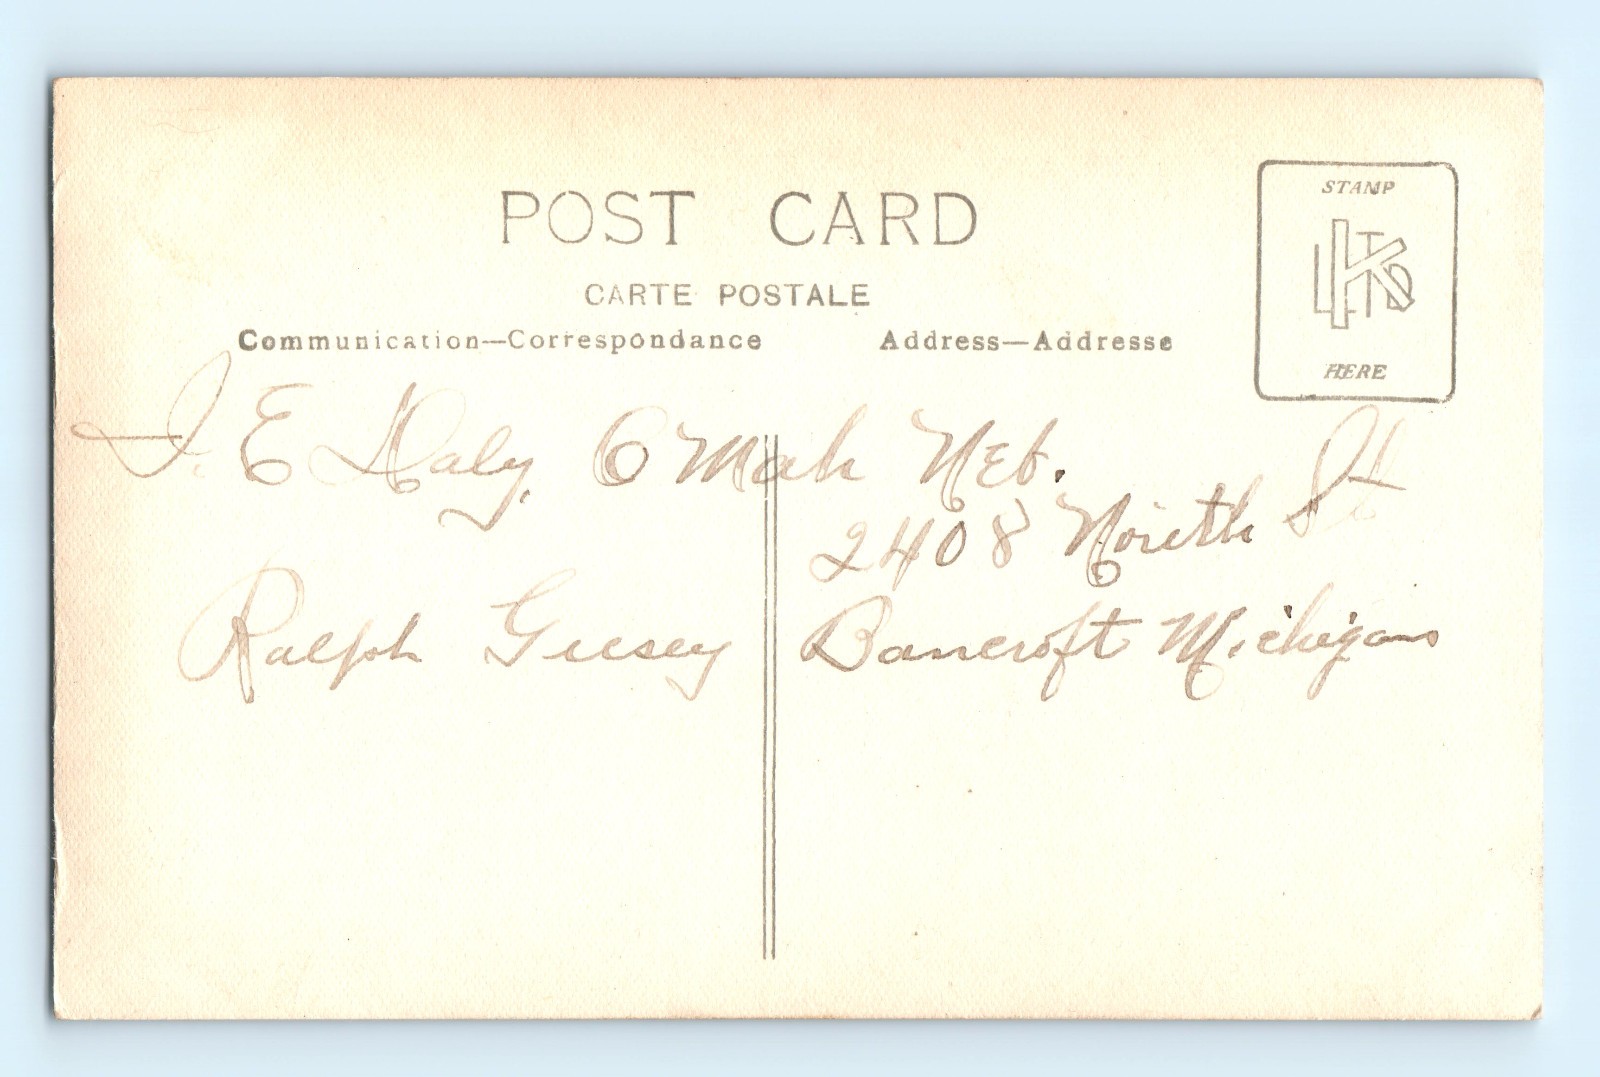 POST CARD
STAMP
LTD
K
HERE
CARTE POSTALE
Communication—Correspondance Address—Addresse
J. E Daly, OMah NEb.
2408 North St
Ralph Geesey Bancroft Michigan